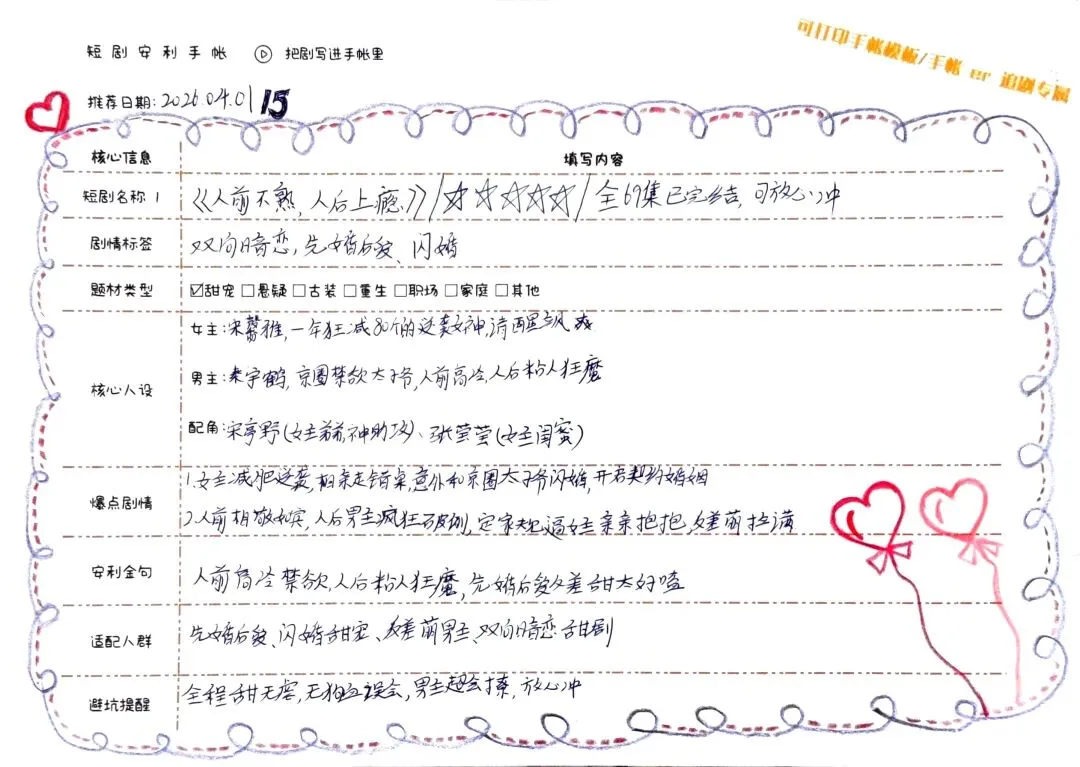 短剧安利手帐 把剧写进手帐里
可打印手帐模板/手帐 er 追剧专属
推荐日期: 2026.04.01 15
核心信息 填写内容
短剧名称 1 《人前不熟,人后上瘾》/☆☆☆☆☆/全69集已完结,可放心冲
剧情标签 双向暗恋,先婚后爱、闪婚
题材类型 ☑甜宠□悬疑□古装□重生□职场□家庭□其他
女主:宋馨雅,一年狂减80斤的逆袭女神,清醒飒爽
核心人设 男主:秦宇鹤,京圈禁欲太子爷,人前高冷,人后粘人狂魔
配角:宋亭野(女主弟弟,神助攻)、张莹莹(女主闺蜜)
1.女主减肥逆袭,相亲走错桌,意外和京圈太子爷闪婚,开启契约婚姻
爆点剧情
2.人前相敬如宾,人后男主疯狂,定家规逼女主亲亲抱抱,反差萌拉满
安利金句 人前高冷禁欲,人后粘人狂魔,先婚后爱反差甜太好嗑
适配人群 先婚后爱、闪婚甜宠、反差萌男主、双向暗恋甜剧
避坑提醒 全程甜无虐,无狗血误会,男主超会撩,放心冲